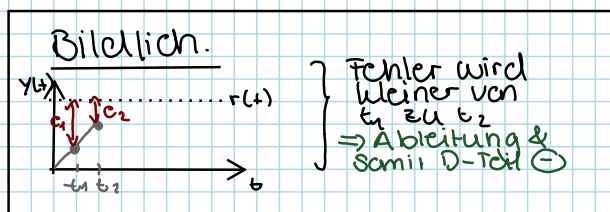 Bildlich.
y(t)
r(t)
e1
e2
t1 t2
t
Fehler wird
kleiner von
t1 zu t2
⇒ Ableitung &
somit D-Teil ⊖